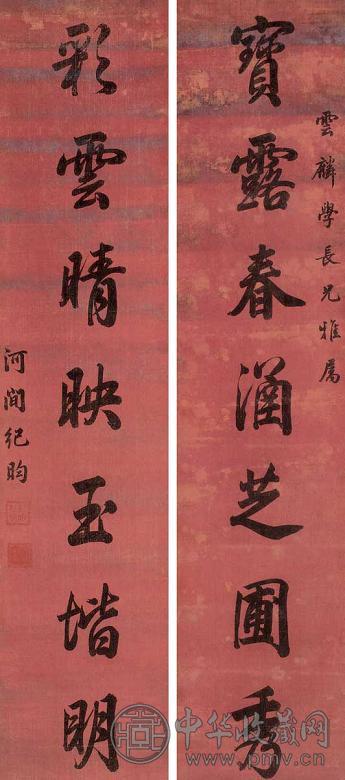 雲麟學長兄雅属
寶露春涵芝圃秀
彩雲晴映玉堦明
河間紀昀
中华收藏网
www.pmv.cn